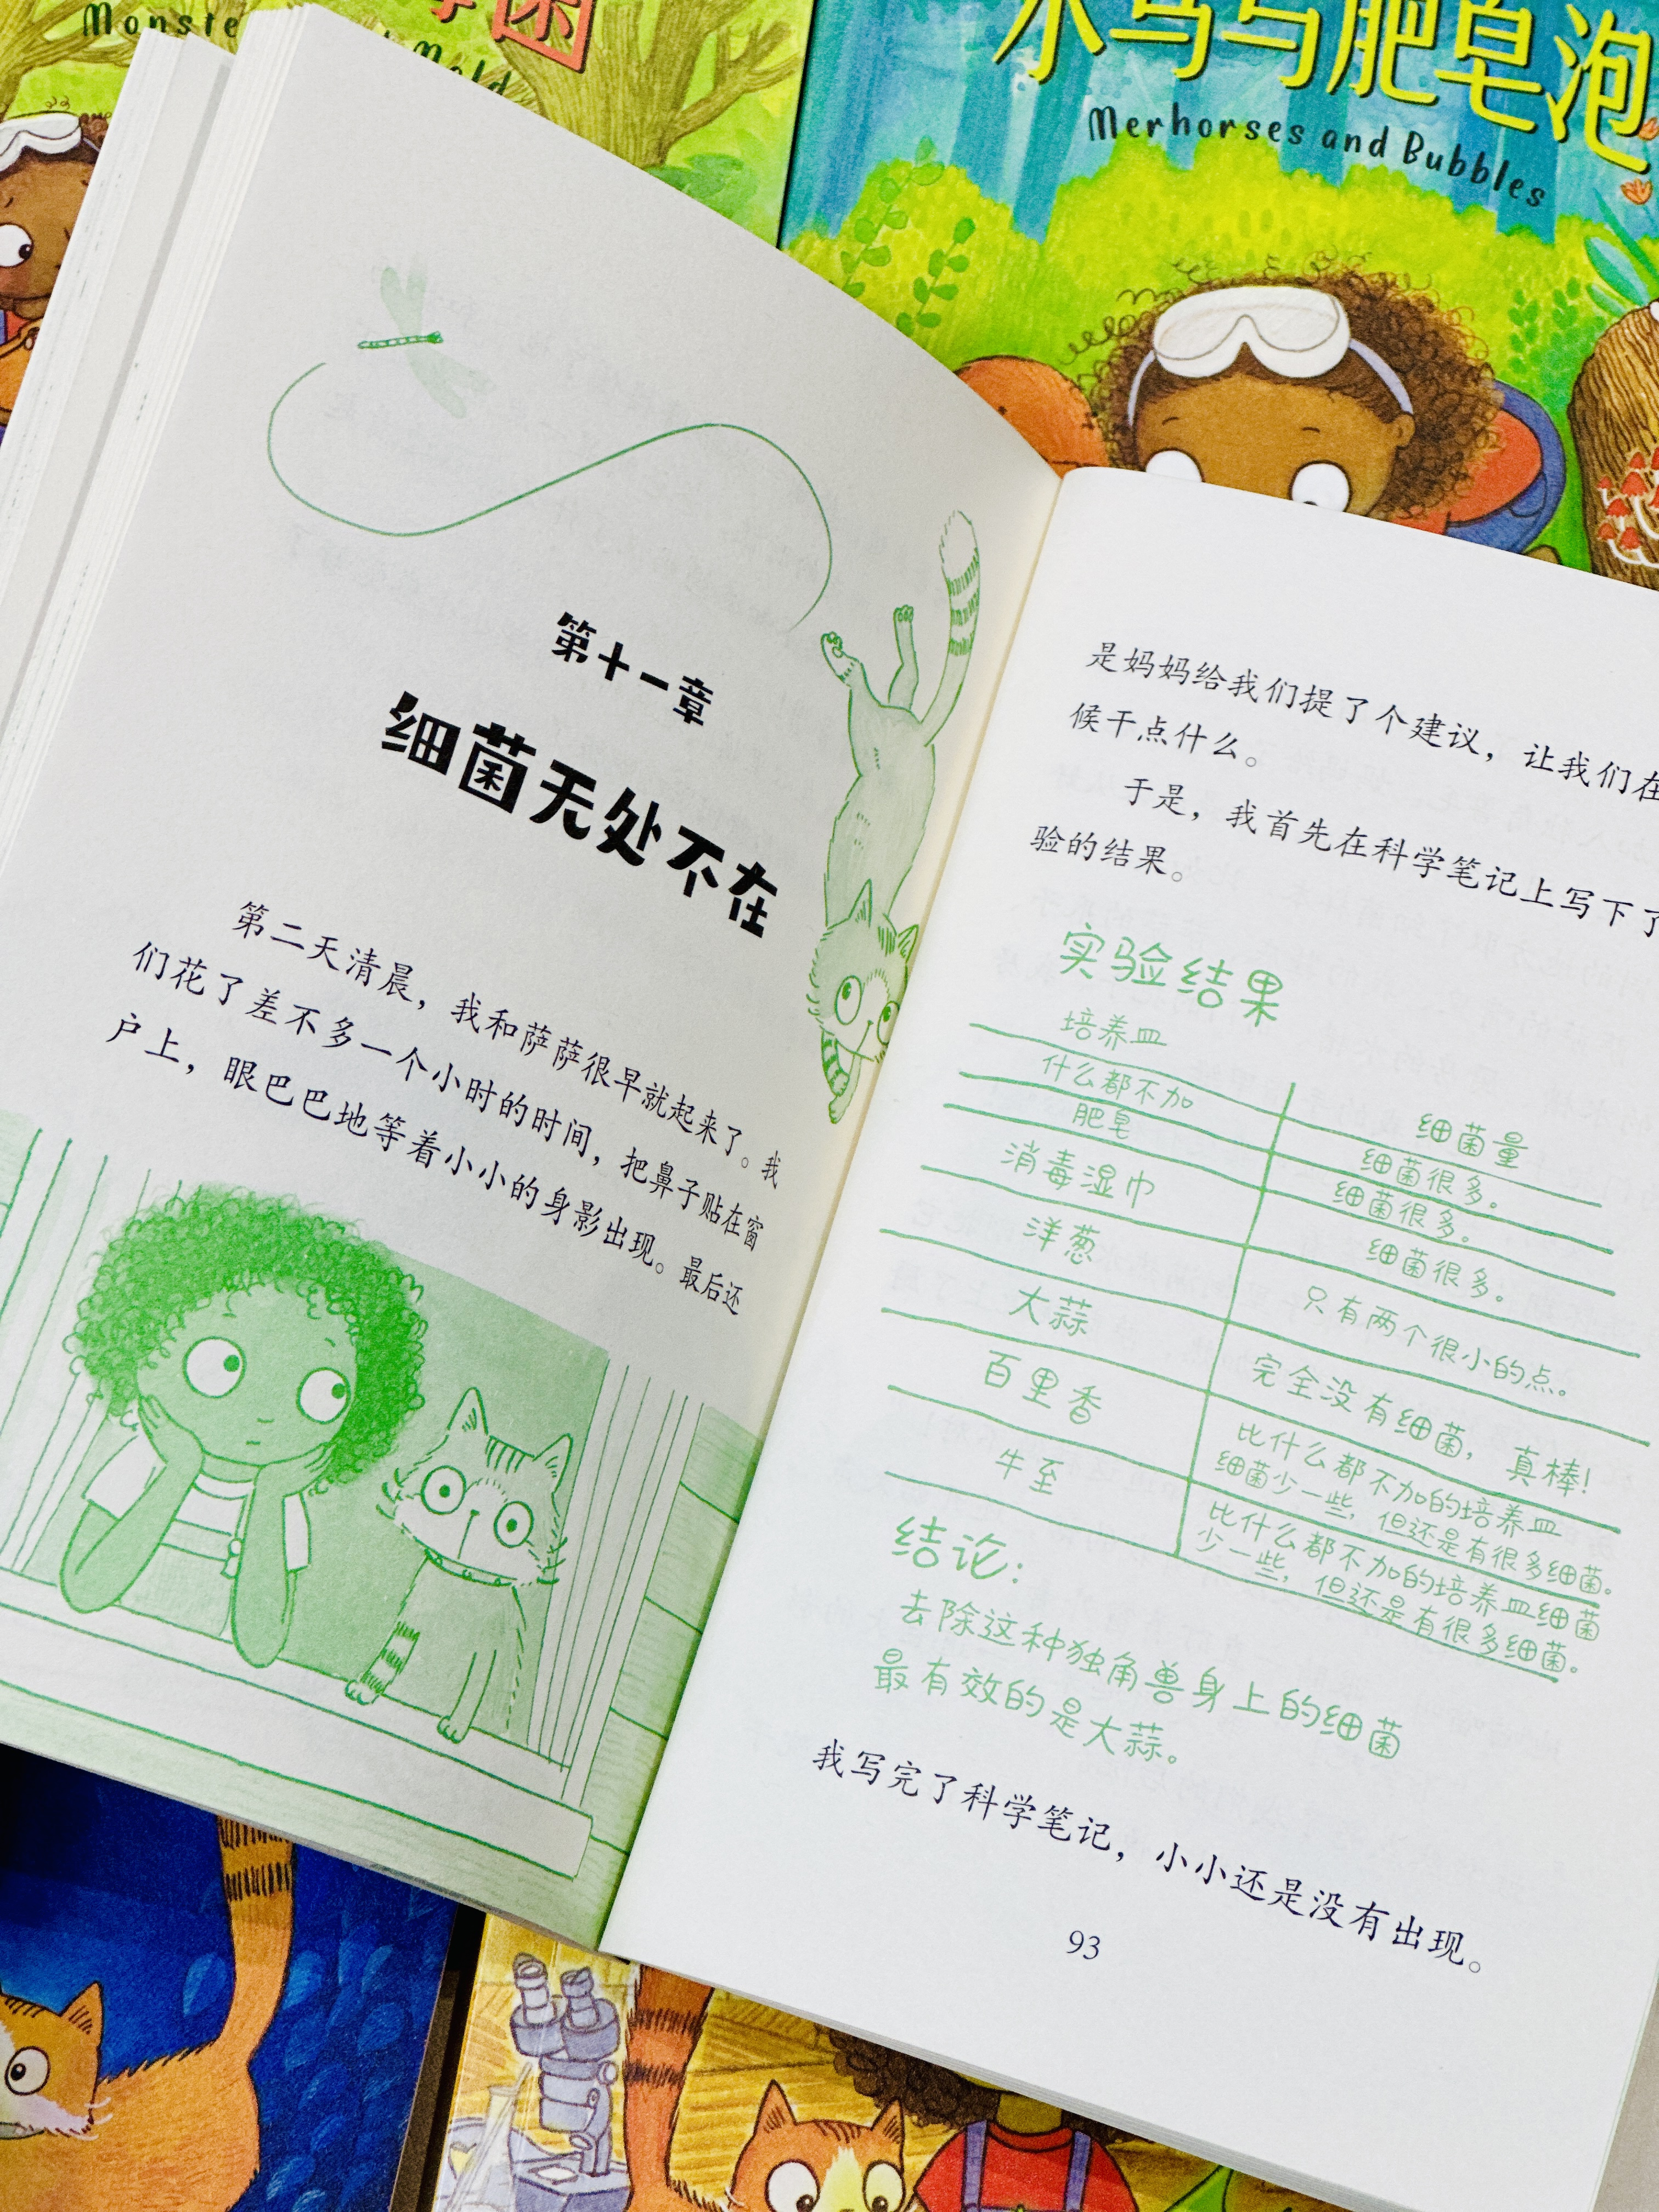 Monste
Mold
水马与肥皂泡
Merhorses and Bubbles
第十一章
细菌无处不在
第二天清晨，我和萨萨很早就起来了。我
们花了差不多一个小时的时间，把鼻子贴在窗
户上，眼巴巴地等着小小的身影出现。最后还
是妈妈给我们提了个建议，让我们在
候干点什么。
于是，我首先在科学笔记上写下了
验的结果。
实验结果
培养皿 细菌量
什么都不加 细菌很多。
肥皂 细菌很多。
消毒湿巾 细菌很多。
洋葱 只有两个很小的点。
大蒜 完全没有细菌，真棒！
百里香 比什么都不加的培养皿
细菌少一些，但还是有很多细菌。
牛至 比什么都不加的培养皿细菌
少一些，但还是有很多细菌。
结论：
去除这种独角兽身上的细菌
最有效的是大蒜。
我写完了科学笔记，小小还是没有出现。
93